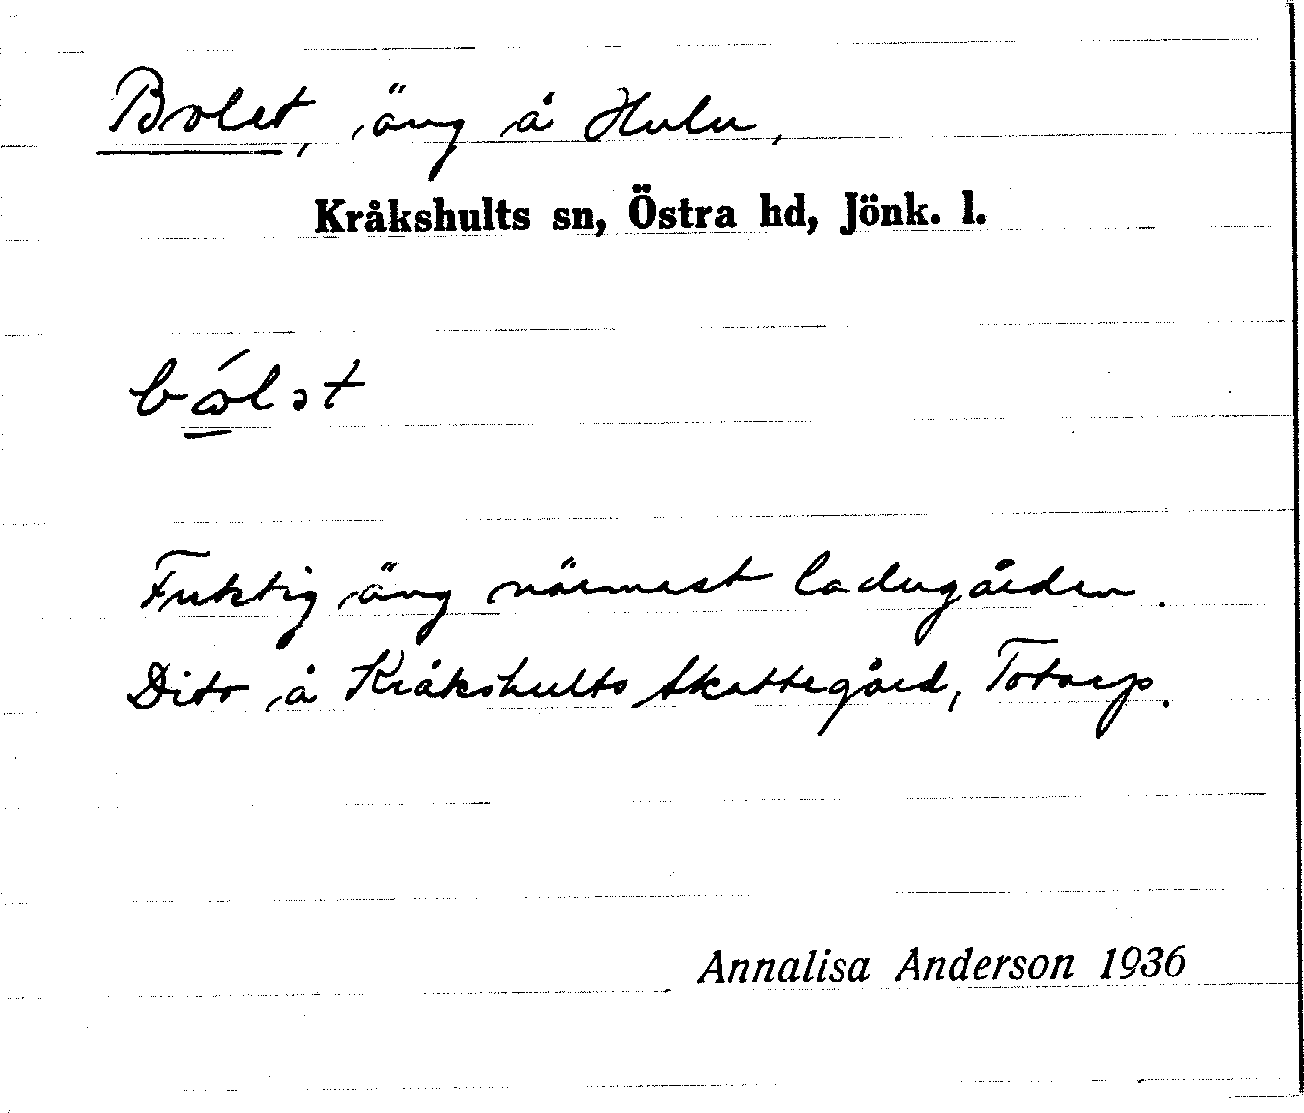 Bolet, äng å Hulu,
Kråkshults sn, Östra hd, Jönk. l.
Fuktig äng närmast ladugården.
Dito å Kråkshults Skattegård, Totarp.
Annalisa Anderson 1936